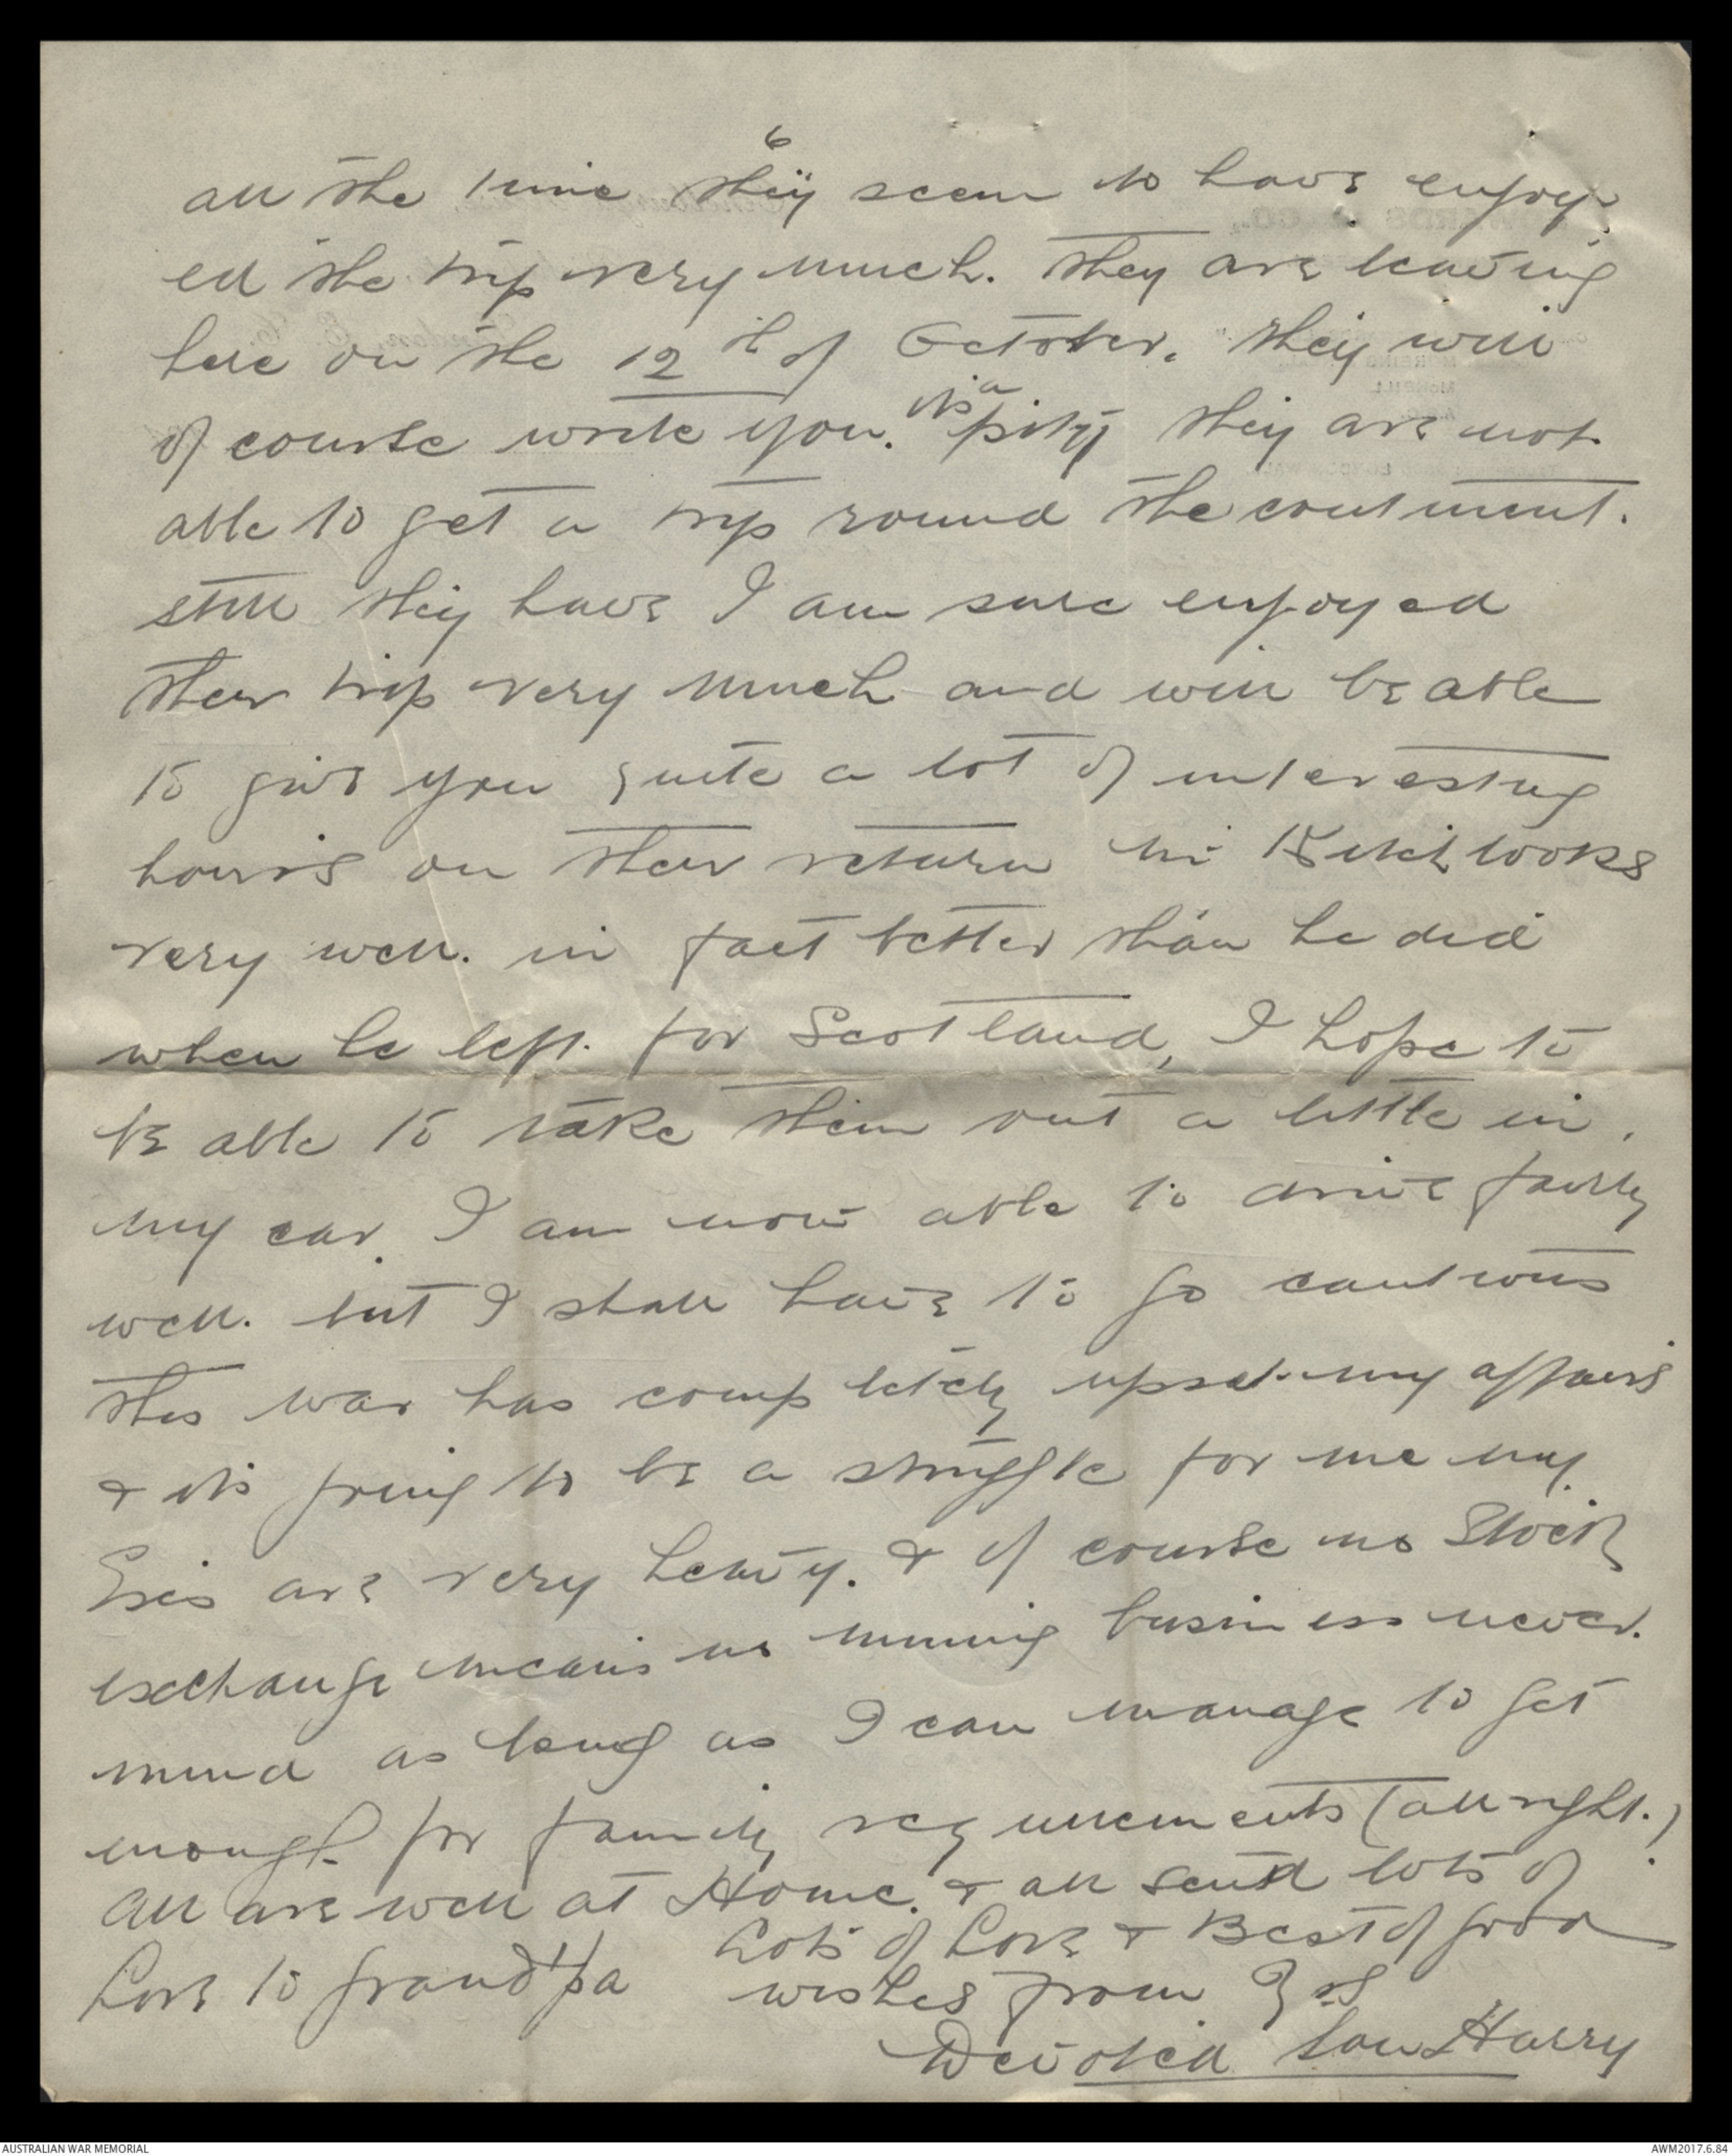 6
all the time they seem to have enjoy-
ed the trip very much. They are leaving
here on the 12th of October. they will
of course write you. its a pity they are not
able to get a trip round the continent.
still they have I am sure enjoyed
their trip very much and will be able
to give you quite a lot of interesting
hours on their return looks
very well. in fact better than he did
when he left for Scotland, I hope to
be able to take them out a little in
my car. I am now able to drive fairly
well. but I shall have to go cautious
this war has completely upset my affairs
& its going to be a struggle for me my
Exes are very heavy. & of course no Stock
exchange means no mining business never
mind as long as I can manage to get
enough for family requirements (all right.)
All are well at Home. & all send lots of
Love to grand'pa Lots of Love & Best of good
wishes from
Devoted Son Harry
AUSTRALIAN WAR MEMORIAL
AWM2017.6.84